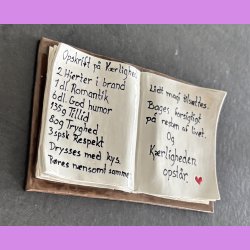 Opskrift på Kærlighed
2 Hjerter i brand
1 dl. Romantik
6 dl. God humor
135g Tillid
80g Tryghed
3 spsk Respekt
Drysses med kys.
Røres nænsomt samme
Lidt magi tilsættes.
Bages forsigtigt
på resten af livet.
Og
Kærligheden
opstår.